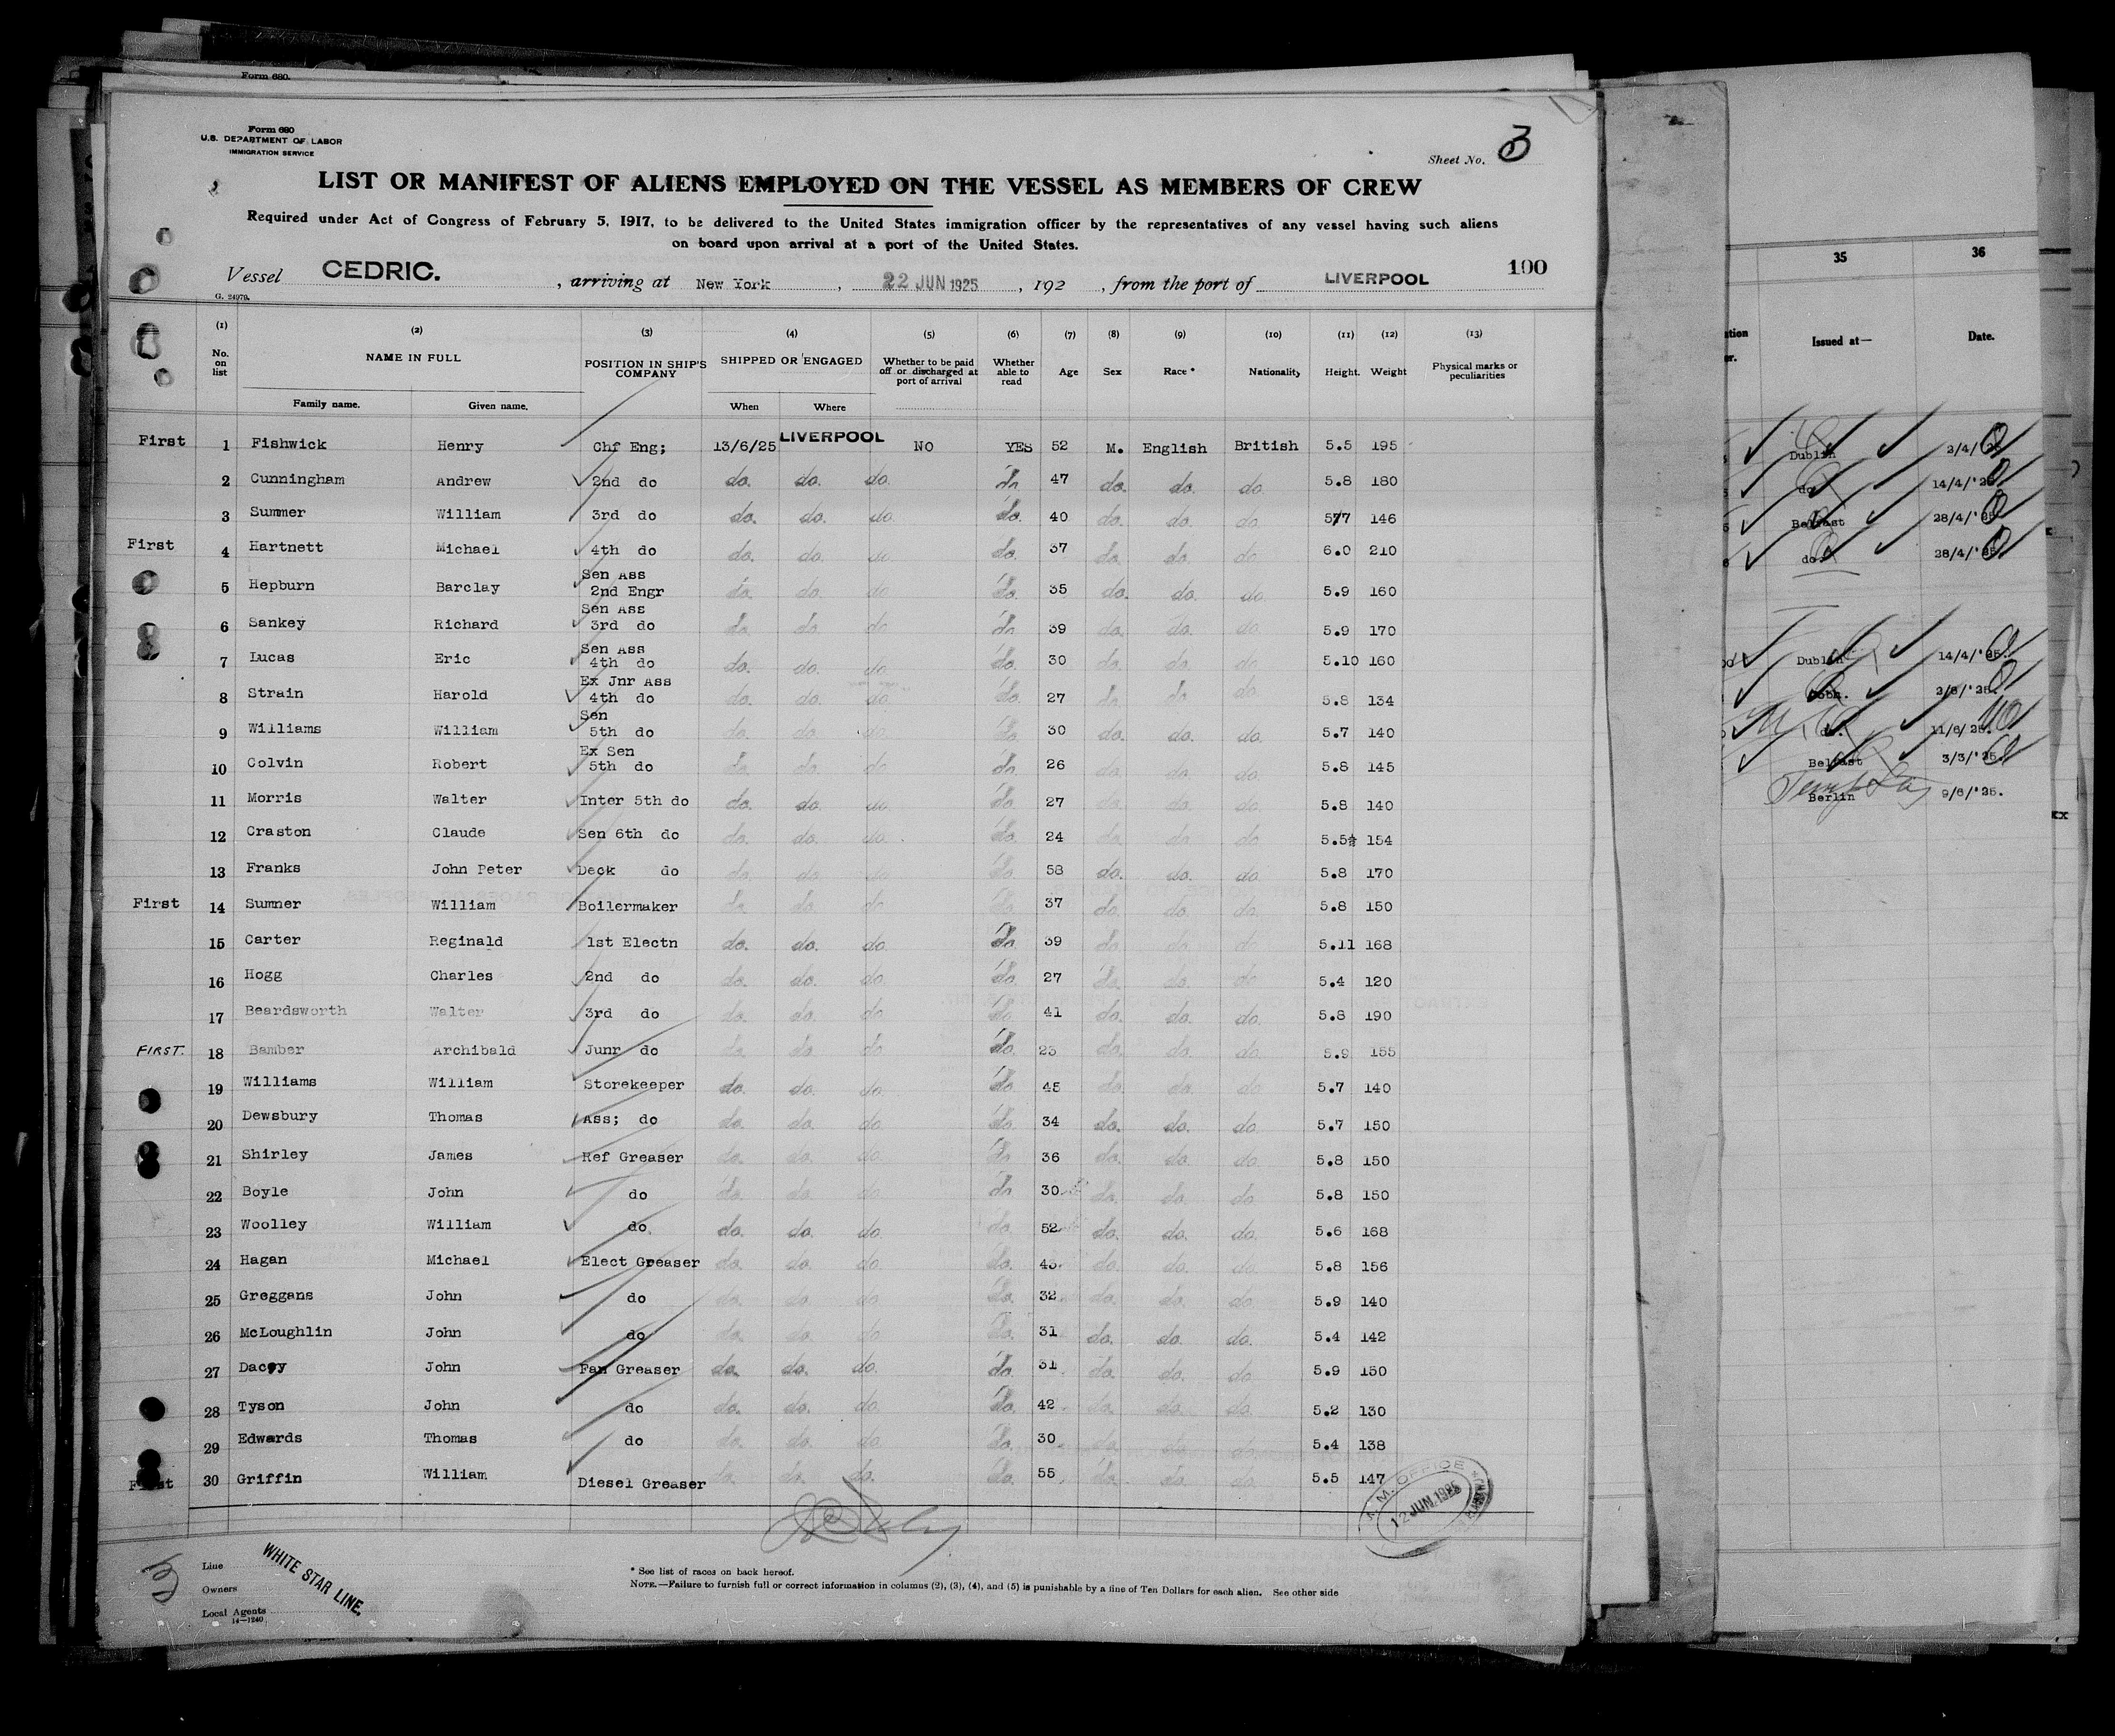 Form 680.
Form 680
U.S. DEPARTMENT OF LABOR
IMMIGRATION SERVICE
Sheet No. 3
LIST OR MANIFEST OF ALIENS EMPLOYED ON THE VESSEL AS MEMBERS OF CREW
Required under Act of Congress of February 5, 1917, to be delivered to the United States immigration officer by the representatives of any vessel having such aliens
on board upon arrival at a port of the United States.
100
Vessel CEDRIC. , arriving at New York , 22 JUN 1925 , 192 , from the port of LIVERPOOL
G. 24979.
(1) (2) (3) (4) (5) (6) (7) (8) (9) (10) (11) (12) (13)
No. on list NAME IN FULL POSITION IN SHIP'S COMPANY SHIPPED OR ENGAGED Whether to be paid off or discharged at port of arrival Whether able to read Age Sex Race * Nationality Height. Weight Physical marks or peculiarities
Family name. Given name. When Where
First 1 Fishwick Henry Chf Eng; 13/6/25 LIVERPOOL NO YES 52 M. English British 5.5 195
2 Cunningham Andrew 2nd do do. do. do. do 47 do. do. do. 5.8 180
3 Summer William 3rd do do. do. do. do. 40 do. do. do. 577 146
First 4 Hartnett Michael 4th do do. do. do. do. 37 do. do. do. 6.0 210
5 Hepburn Barclay Sen Ass 2nd Engr do. do. do. do. 35 do. do. do. 5.9 160
6 Sankey Richard Sen Ass 3rd do do. do. do. do. 39 do. do. do. 5.9 170
7 Lucas Eric Sen Ass 4th do do. do. do. do. 30 do. do. do. 5.10 160
8 Strain Harold Ex Jnr Ass 4th do do. do. do. do. 27 do. do. do. 5.8 134
9 Williams William Sen 5th do do. do. do. do. 30 do. do. do. 5.7 140
10 Colvin Robert Ex Sen 5th do do. do. do. do. 26 do. do. do. 5.8 145
11 Morris Walter Inter 5th do do. do. do. do. 27 do. do. do. 5.8 140
12 Craston Claude Sen 6th do do. do. do. do. 24 do. do. do. 5.5½ 154
13 Franks John Peter Deck do do. do. do. do. 58 do. do. do. 5.8 170
First 14 Sumner William Boilermaker do. do. do. do. 37 do. do. do. 5.8 150
15 Carter Reginald 1st Electn do. do. do. do. 39 do. do. do. 5.11 168
16 Hogg Charles 2nd do do. do. do. do. 27 do. do. do. 5.4 120
17 Beardsworth Walter 3rd do do. do. do. do. 41 do. do. do. 5.8 190
FIRST. 18 Bamber Archibald Junr do do. do. do. do. 23 do. do. do. 5.9 155
19 Williams William Storekeeper do. do. do. do. 45 do. do. do. 5.7 140
20 Dewsbury Thomas Ass; do do. do. do. do. 34 do. do. do. 5.7 150
21 Shirley James Ref Greaser do. do. do. do. 36 do. do. do. 5.8 150
22 Boyle John do do. do. do. do. 30 do. do. do. 5.8 150
23 Woolley William do do. do. do. do. 52 do. do. do. 5.6 168
24 Hagan Michael Elect Greaser do. do. do. do. 43 do. do. do. 5.8 156
25 Greggans John do do. do. do. do. 32 do. do. do. 5.9 140
26 McLoughlin John do do. do. do. do. 31 do. do. do. 5.4 142
27 Dacey John Fan Greaser do. do. do. do. 31 do. do. do. 5.9 150
28 Tyson John do do. do. do. do. 42 do. do. do. 5.2 130
29 Edwards Thomas do do. do. do. do. 30 do. do. do. 5.4 138
First 30 Griffin William Diesel Greaser do. do. do. do. 55 do. do. do. 5.5 147
M. OFFICE 12 JUN. 1925
Line WHITE STAR LINE.
Owners
Local Agents
14—1240
* See list of races on back hereof.
NOTE.—Failure to furnish full or correct information in columns (2), (3), (4), and (5) is punishable by a fine of Ten Dollars for each alien. See other side
35 36
Issued at— Date.
Dublin 2/4/
do 14/4/'25
Belfast 28/4/'25
do. 28/4/'25
Dublin 14/4/'25.
Cobh. 2/6/'25.
do. 11/6/25.
Belfast 3/3/'25.
Berlin 9/6/'25.